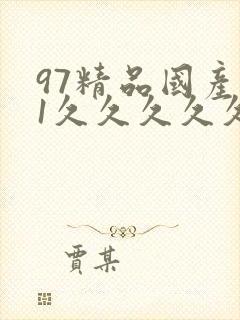 97精品國產
1久久久久久
賈某